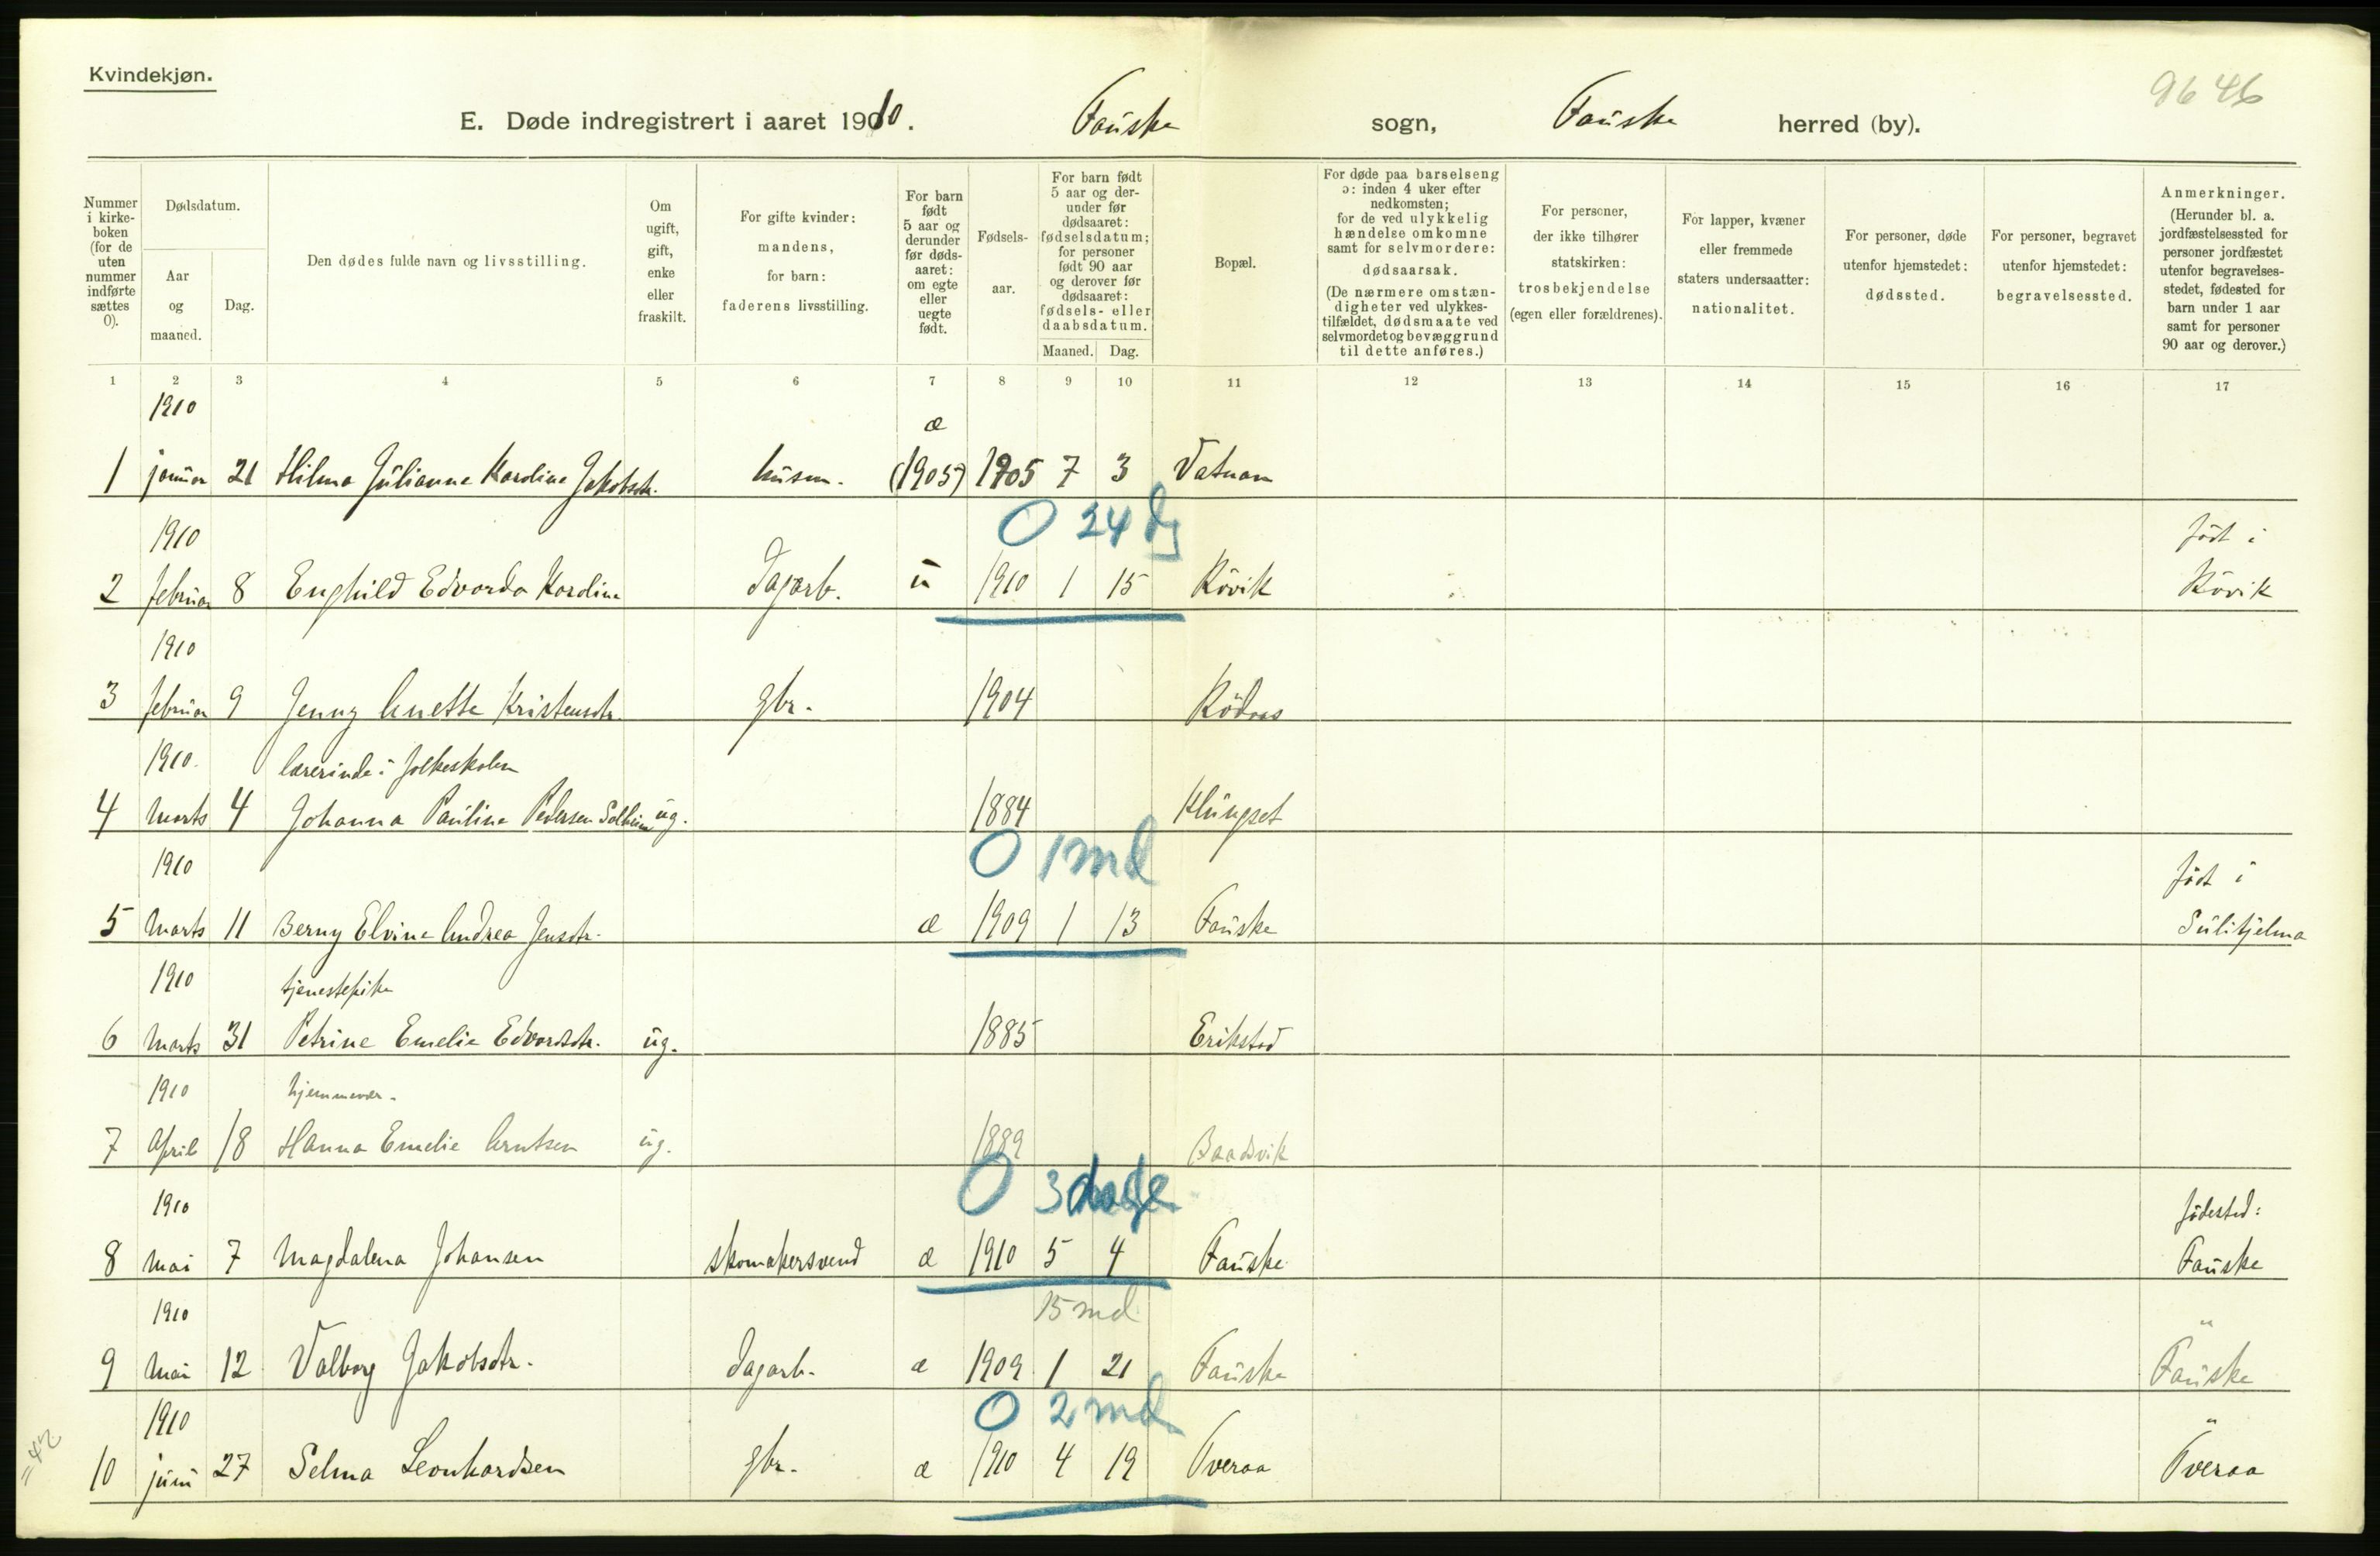 Kvindekjøn.
9646
E. Døde indregistrert i aaret 1910. Fauske sogn, Fauske herred (by).
Nummer i kirke-boken (for de uten nummer indførte sættes 0).
Dødsdatum.
Aar og maaned.
Dag.
Den dødes fulde navn og livsstilling.
Om ugift, gift, enke eller fraskilt.
For gifte kvinder: mandens, for barn: faderens livsstilling.
For barn født 5 aar og derunder før døds-aaret: om egte eller uegte født.
Fødsels-aar.
For barn født 5 aar og der-under før dødsaaret: fødselsdatum; for personer født 90 aar og derover før dødsaaret: fødsels- eller daabsdatum.
Maaned. Dag.
Bopæl.
For døde paa barselseng ɔ: inden 4 uker efter nedkomsten; for de ved ulykkelig hændelse omkomne samt for selvmordere: dødsaarsak. (De nærmere omstæn-digheter ved ulykkes-tilfældet, dødsmaate ved selvmordet og bevæggrund til dette anføres.)
For personer, der ikke tilhører statskirken: trosbekjendelse (egen eller forældrenes).
For lapper, kvæner eller fremmede staters undersaatter: nationalitet.
For personer, døde utenfor hjemstedet: dødssted.
For personer, begravet utenfor hjemstedet: begravelsessted.
Anmerkninger. (Herunder bl. a. jordfæstelsessted for personer jordfæstet utenfor begravelses-stedet, fødested for barn under 1 aar samt for personer 90 aar og derover.)
1 2 3 4 5 6 7 8 9 10 11 12 13 14 15 16 17
1910 æ
1 januar 21 Hilma Julianne Karoline Jakobsdtr. husm. (1905) 1905 7 3 Vatnan
1910 0 24 dg født i
2 februar 8 Enghild Edvarda Karoline dagarb. u 1910 1 15 Røvik Røvik
1910
3 februar 9 Jenny Anette Kristensdtr. gbr. 1904 Rødaas
1910. lærerinde i folkeskolen
4 Marts 4 Johanna Pauline Pedersen Solheim ug. 1884 Klungset
1910 0 1 md født i
5 Marts 11 Berny Elvine Andrea Jensdtr. æ 1909 1 13 Fauske Sulitjelma
1910 tjenestepike
6 Marts 31 Petrine Emelie Edvardsdtr. ug. 1885 Erikstad
1910 hjemmevær.
7 April 18 Hanna Emelie Arntsen ug. 1889 Baadsvik
1910 0 3 dage fødested:
8 Mai 7 Magdalena Johansen skomakersvend æ 1910 5 4 Fauske Fauske
1910 15 md "
9 Mai 12 Valborg Jakobsdtr. dagarb. æ 1909 1 21 Fauske Fauske
1910 0 2 md "
10 juni 27 Selma Leonhardsen gbr. æ 1910 4 19 Tveraa Tveraa
=42